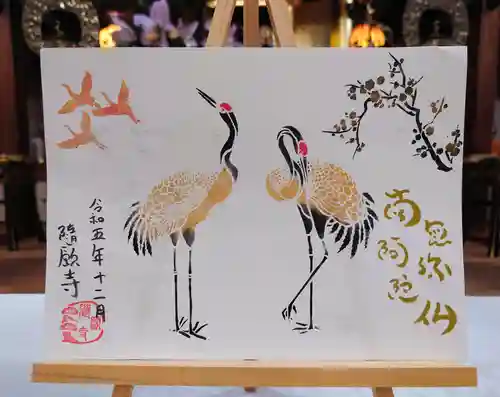 南無阿弥陀仏
令和五年十二月
隨願寺